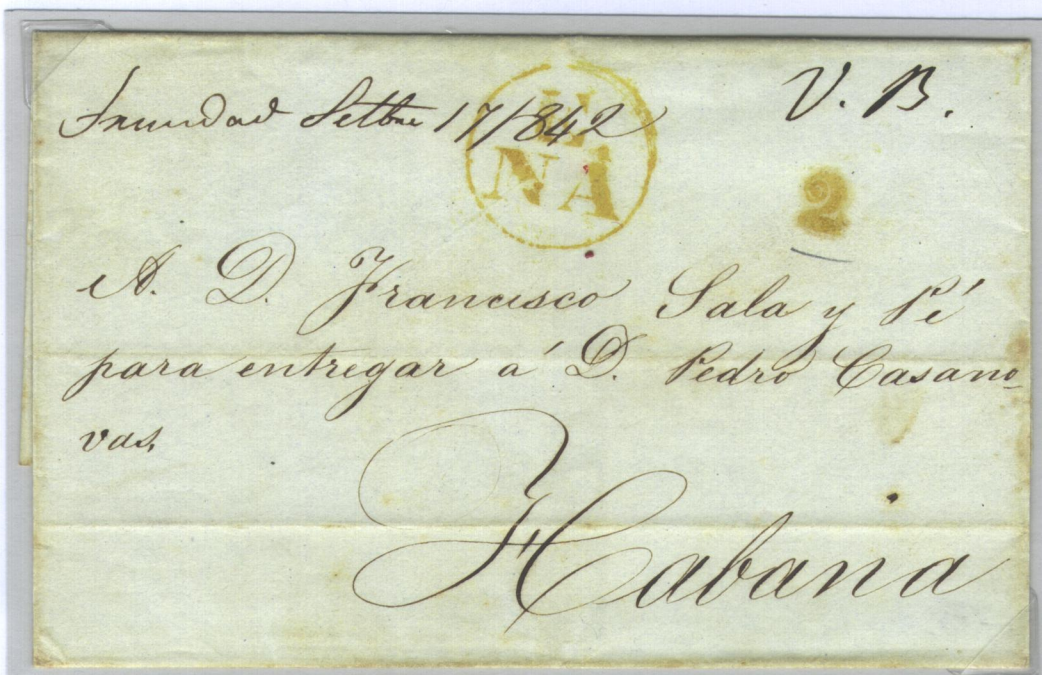 Trinidad Settbre 17/842
V. B.
LL
NA
2
A. D. Francisco Sala y Pé
para entregar á D. Pedro Casano-
vas.
Habana